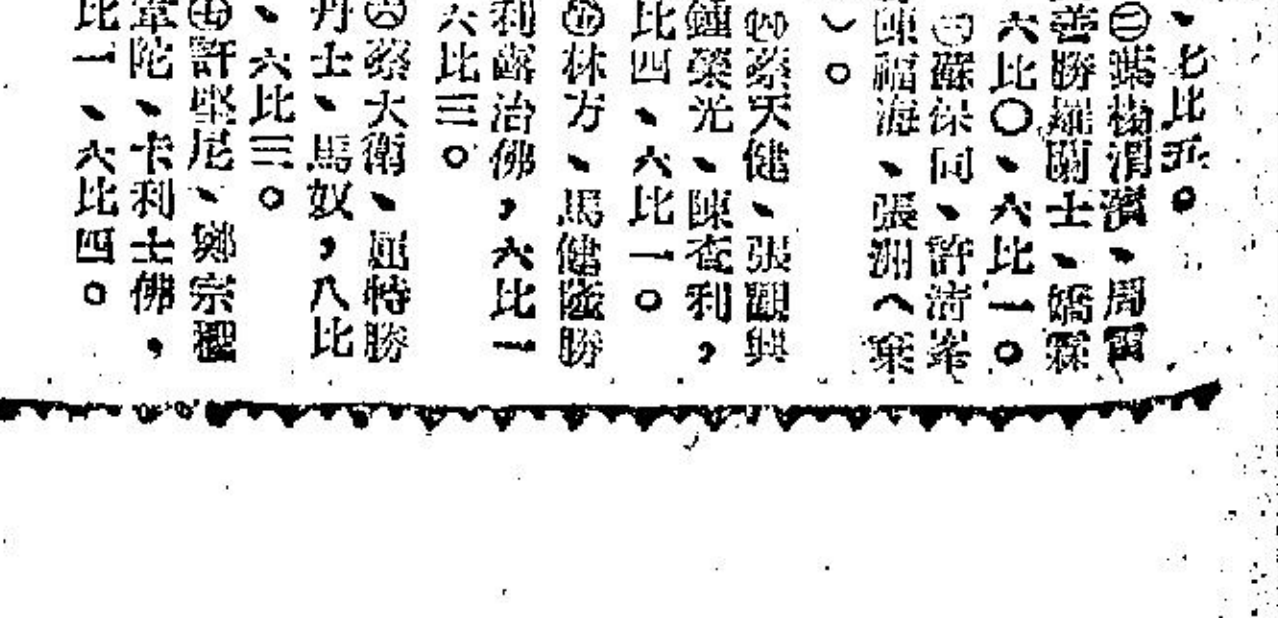 、七比五。
㊁葉楊渭濱、周爾
善勝羅蘭士、嬌霖
六比〇、六比一。
㊂蘇保同、許清
陳福海、張洲（棄
）。
㊃蔡天健、張觀興
鐘榮光、陳査利，
比四、六比一。
㊄林方、馬健隆勝
利露治佛，六比一
六比三。
㊅蔡大衛、屈特勝
丹士、馬奴，八比
、六比三。
㊆許堅尼、鄭宗
韋陀、卡利士佛，
比一、六比四。